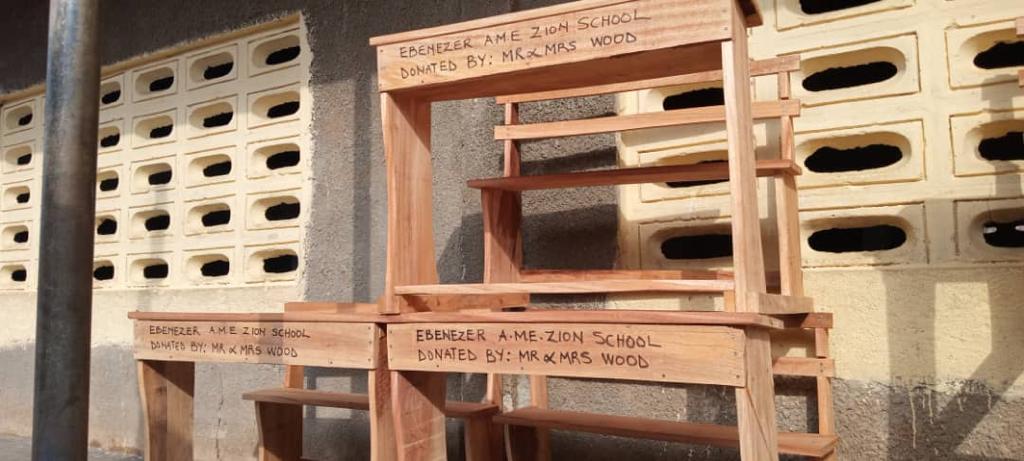 EBENEZER A.M.E ZION SCHOOL
DONATED BY: MR & MRS WOOD
EBENEZER A.M.E ZION SCHOOL
DONATED BY: MR & MRS WOOD
EBENEZER A.ME.ZION SCHOOL
DONATED BY: MR & MRS WOOD